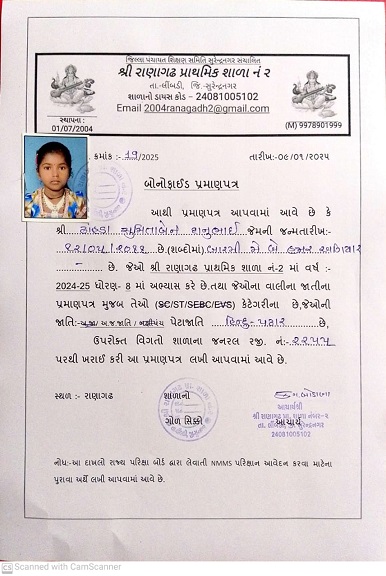 જિલ્લા પંચાયત શિક્ષણ સમિતિ સુરેન્દ્રનગર સંચાલિત
શ્રી રાણાગઢ પ્રાથમિક શાળા નં ૨
તા.-લીંબડી, જિ.-સુરેન્દ્રનગર
શાળાનો ડાયસ કોડ - 24081005102
Email 2004ranagadh2@gmail.com
સ્થાપના :
01/07/2004
(M) 9978901999
ક્રમાંક :- 19/2025
તારીખ:-૦૬/૦૧/૨૦૨૫
બોનોફાઈડ પ્રમાણપત્ર
આથી પ્રમાણપત્ર આપવામાં આવે છે કે
શ્રી સુમિતાબેન જેમની જન્મતારીખ:-
૧૨/૦૫/૨૦૧૧ છે.(શબ્દોમાં) બારમી મે બે હજાર અગિયાર
- છે. જેઓ શ્રી રાણાગઢ પ્રાથમિક શાળા નં-2 માં વર્ષ :-
2024-25 ધોરણ- 8 માં અભ્યાસ કરે છે.તથા જેઓના વાલીના જાતીના
પ્રમાણપત્ર મુજબ તેઓ (SC/ST/SEBC/EVS) કેટેગરીના છે.જેઓની
જાતિ:- પેટાજાતિ હિન્દુ- પઢાર છે,
ઉપરોક્ત વિગતો શાળાના જનરલ રજી. નં:-
પરથી ખરાઈ કરી આ પ્રમાણપત્ર લખી આપવામાં આવે છે.
સ્થળ :- રાણાગઢ
શાળાનો
ગોળ સિક્કો
આચાર્ય
આચાર્યશ્રી
શ્રી રાણાગઢ પ્રા. શાળા નંબર-૨
તા. લીંબડી, જિ. સુરેન્દ્રનગર
24081005102
નોંધ:-આ દાખલો રાજ્ય પરિક્ષા બોર્ડ દ્વારા લેવાતી NMMS પરિક્ષાન આવેદન કરવા માટેના
પુરાવા અર્થે લખી આપવામાં આવે છે.
CS Scanned with CamScanner